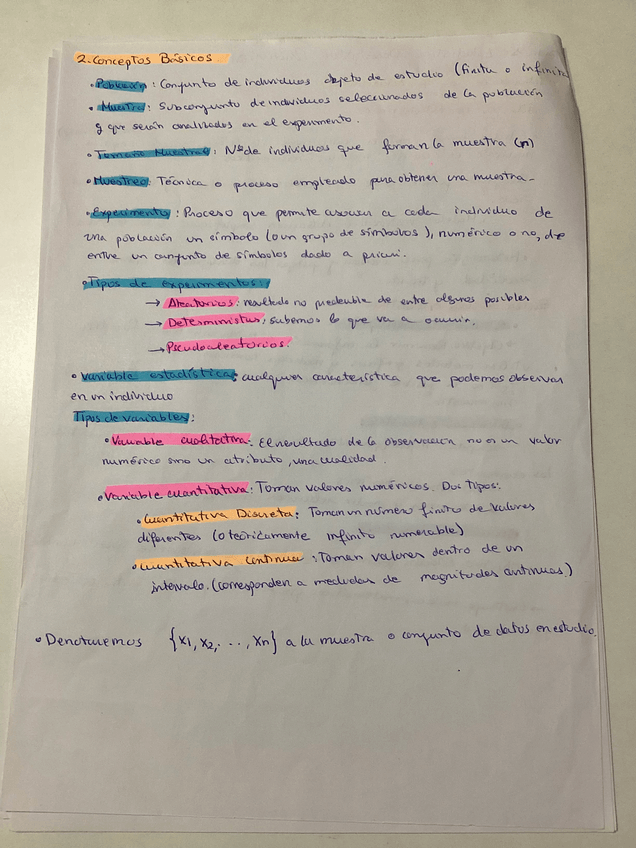 2. Conceptos Básicos.
• Población: Conjunto de individuos objeto de estudio (finita o infinita
• Muestra: Subconjunto de individuos seleccionados de la población
y que serán analizados en el experimento.
• Tamaño Muestral: Nº de individuos que forman la muestra (n)
• Muestreo: Técnica o proceso empleado para obtener una muestra.
• Experimento: Proceso que permite asociar a cada individuo de
una población un símbolo (o un grupo de símbolos), numérico o no, de
entre un conjunto de símbolos dado a priori.
• Tipos de experimentos:
→ Aleatorios: resultado no predecible de entre algunos posibles
→ Deterministas: sabemos lo que va a ocurrir.
→ Pseudoaleatorios.
• Variable estadística: cualquier característica que podemos observar
en un individuo
Tipos de variables:
• Variable cualitativa: El resultado de la observación no es un valor
numérico sino un atributo, una cualidad.
• Variable cuantitativa: Toman valores numéricos. Dos tipos:
• Cuantitativa Discreta: Toman un número finito de valores
diferentes (o teóricamente infinito numerable)
• Cuantitativa Continua: Toman valores dentro de un
intervalo. (corresponden a medidas de magnitudes continuas)
• Denotaremos {x1, x2, ..., xn} a la muestra o conjunto de datos en estudio.